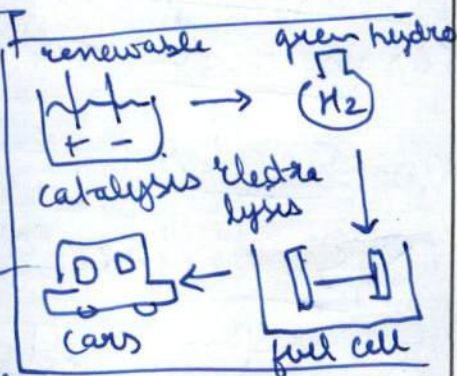 renewable
green hydro
H2
+ -
catalysis Electro
lysis
cars
fuel cell